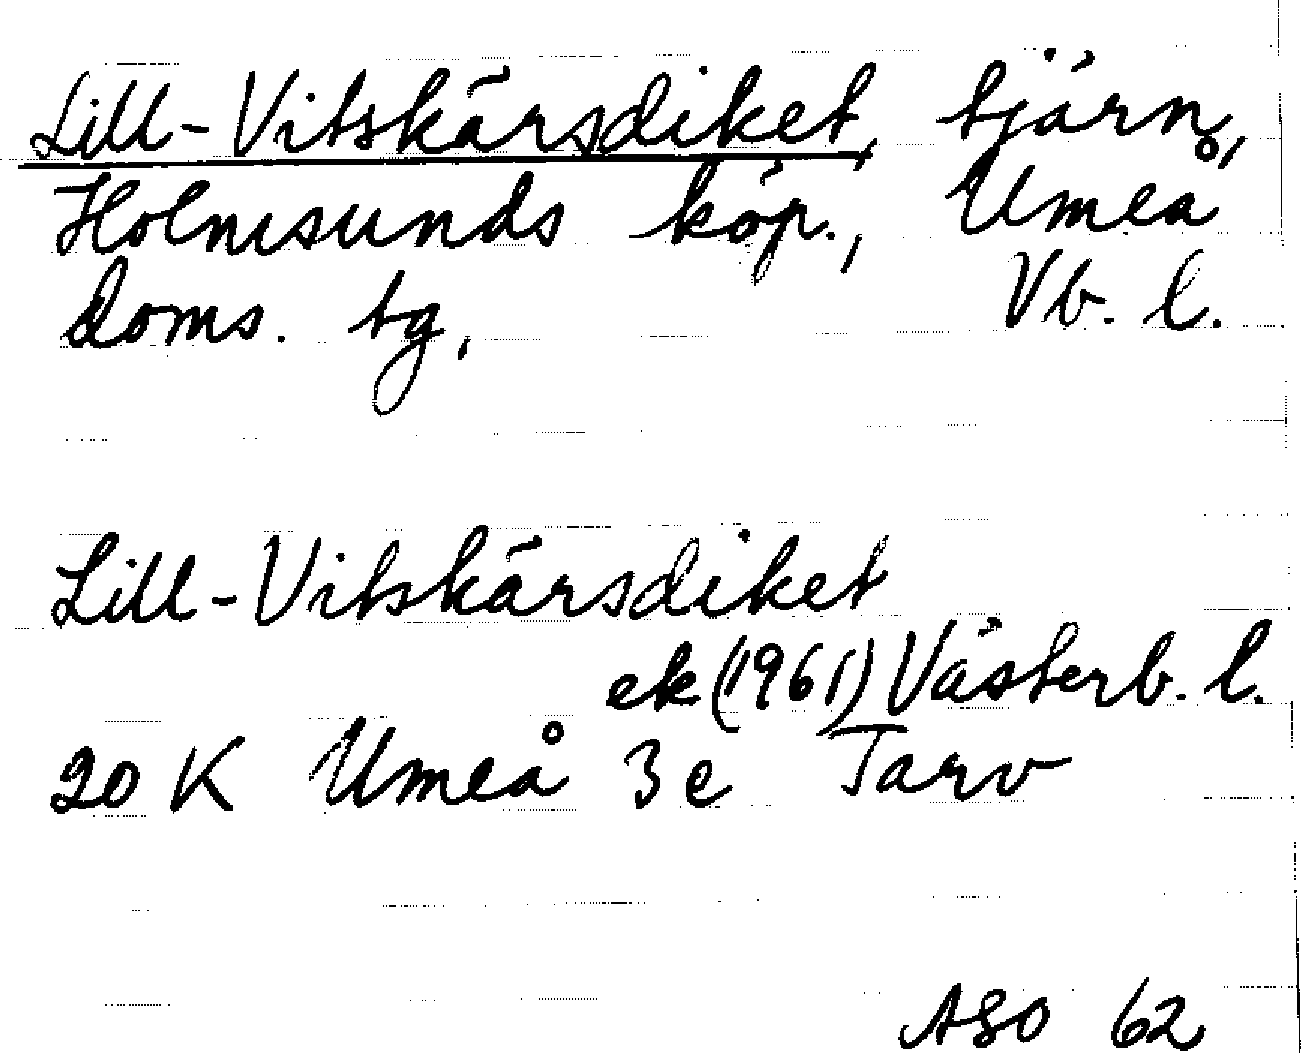 Lill-Vitskärsdiket, tjärn,
Holmsunds köp., Umeå
doms. tg, Vb. l.
Lill-Vitskärsdiket
ek (1961) Västerb. l.
20 K Umeå 3 e Tarv
ASO 62